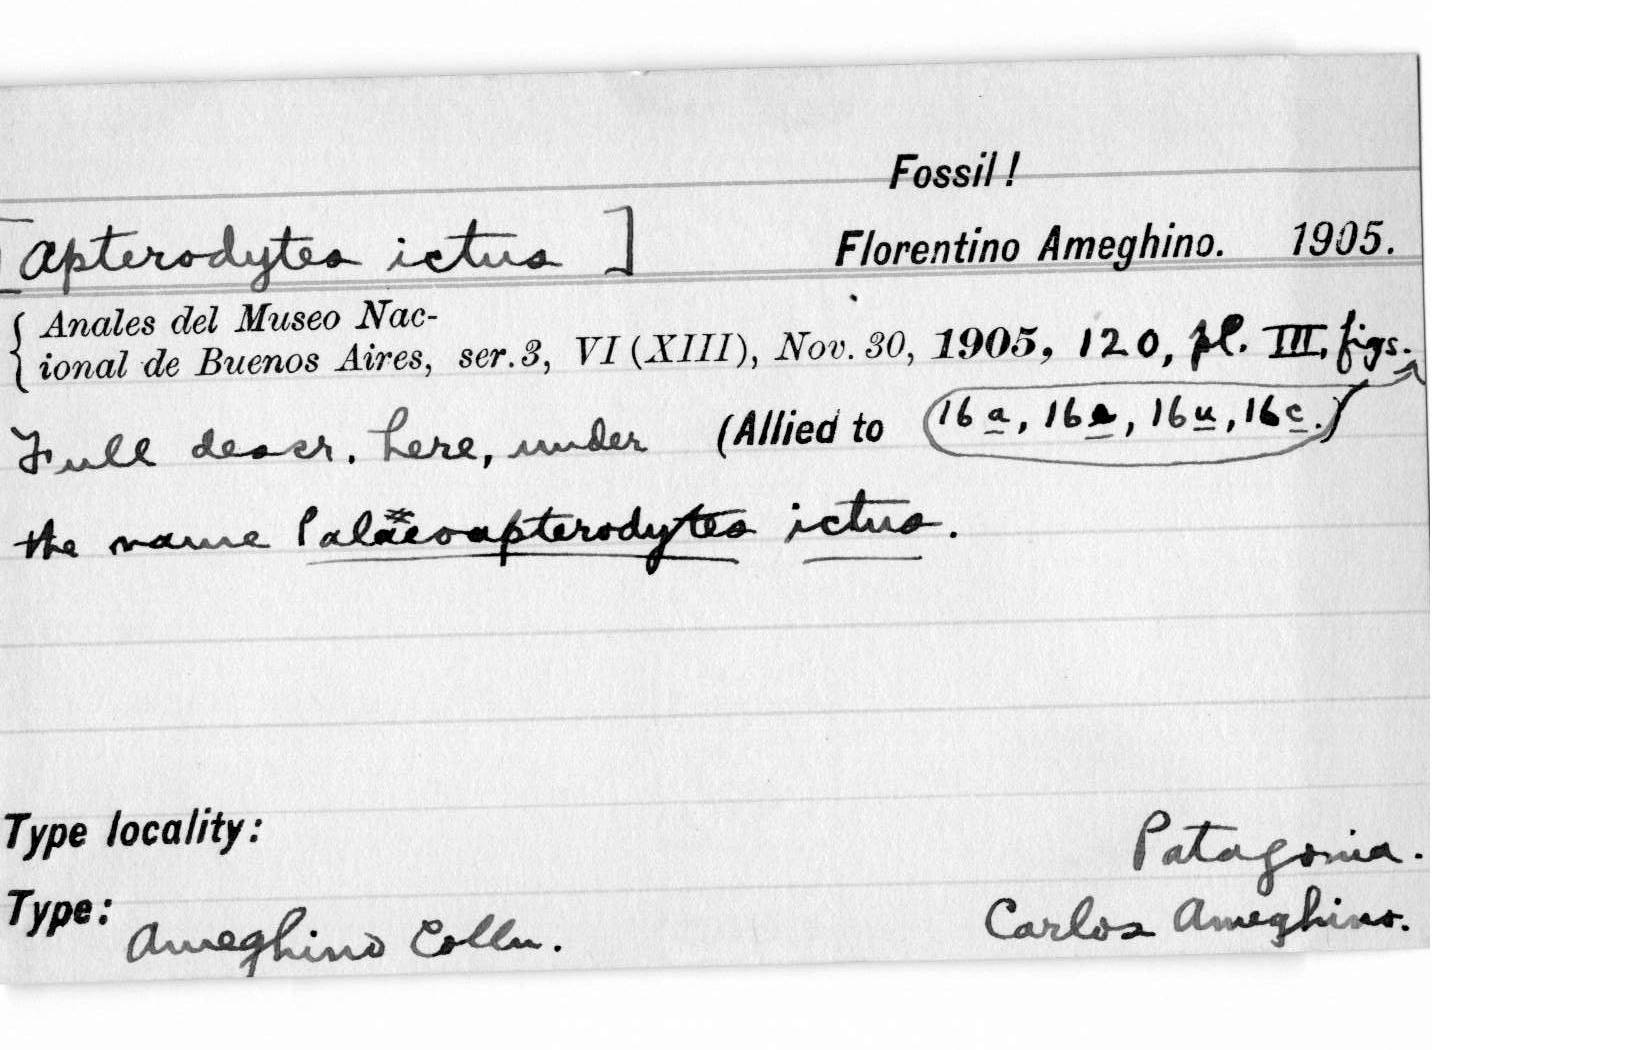 Fossil!
[Apterodytes ictus] Florentino Ameghino. 1905.
{ Anales del Museo Nac-
ional de Buenos Aires, ser. 3, VI (XIII), Nov. 30, 1905, 120, pl. III, figs.
Full descr. here, under (Allied to 16a, 16, 16u, 16c.)
the name Palaeoapterodytes ictus.
Type locality: Patagonia.
Type: Ameghino Colln. Carlos Ameghino.